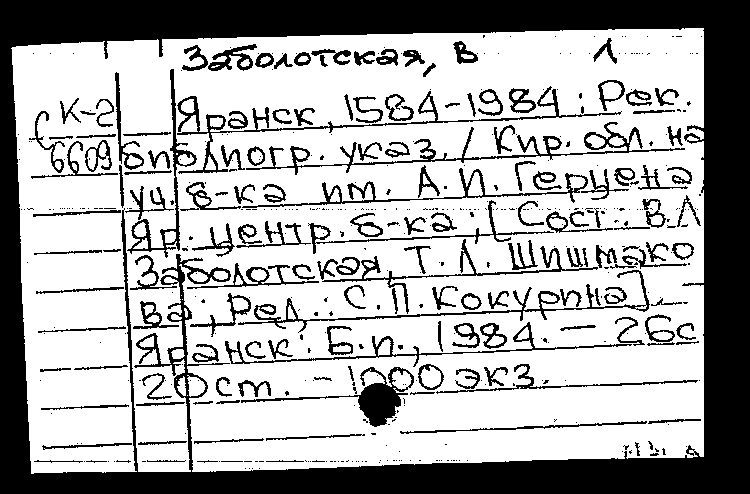 Заболотская, В Л
С К-2 Яранск, 1584-1984 : Рек.
6609 библиогр. указ. / Кир. обл. на
уч. б-ка им. А. И. Герцена,
Яр. центр. б-ка ; [Сост.: В.Л
Заболотская, Т. Л. Шишмако
ва ; Ред.: С. П. Кокурина]. -
Яранск : Б. и., 1984. - 26 с
20 см. - 1000 экз.